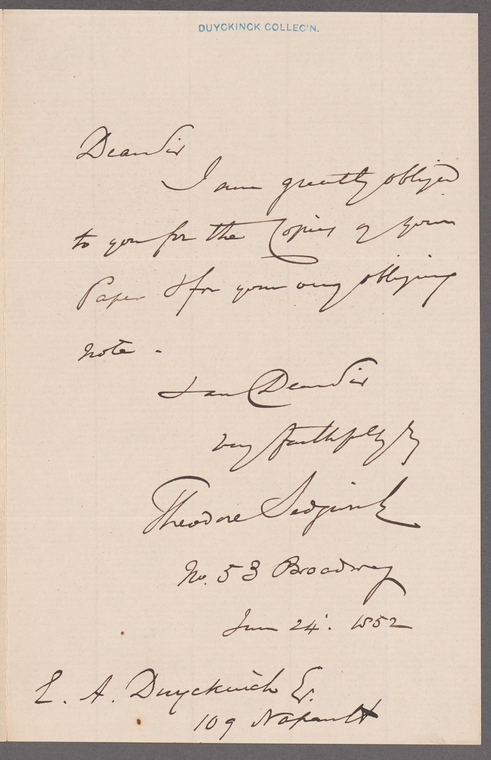 DUYCKINCK COLLEC'N.
Dear Sir
I am greatly obliged
to you for the Copies of your
Paper & for your very obliging
note.
I am Dear Sir
very faithfully
Theodore Sedgwick
No. 53 Broadway
24. 1852
E. A. Duyckinck Es.
109